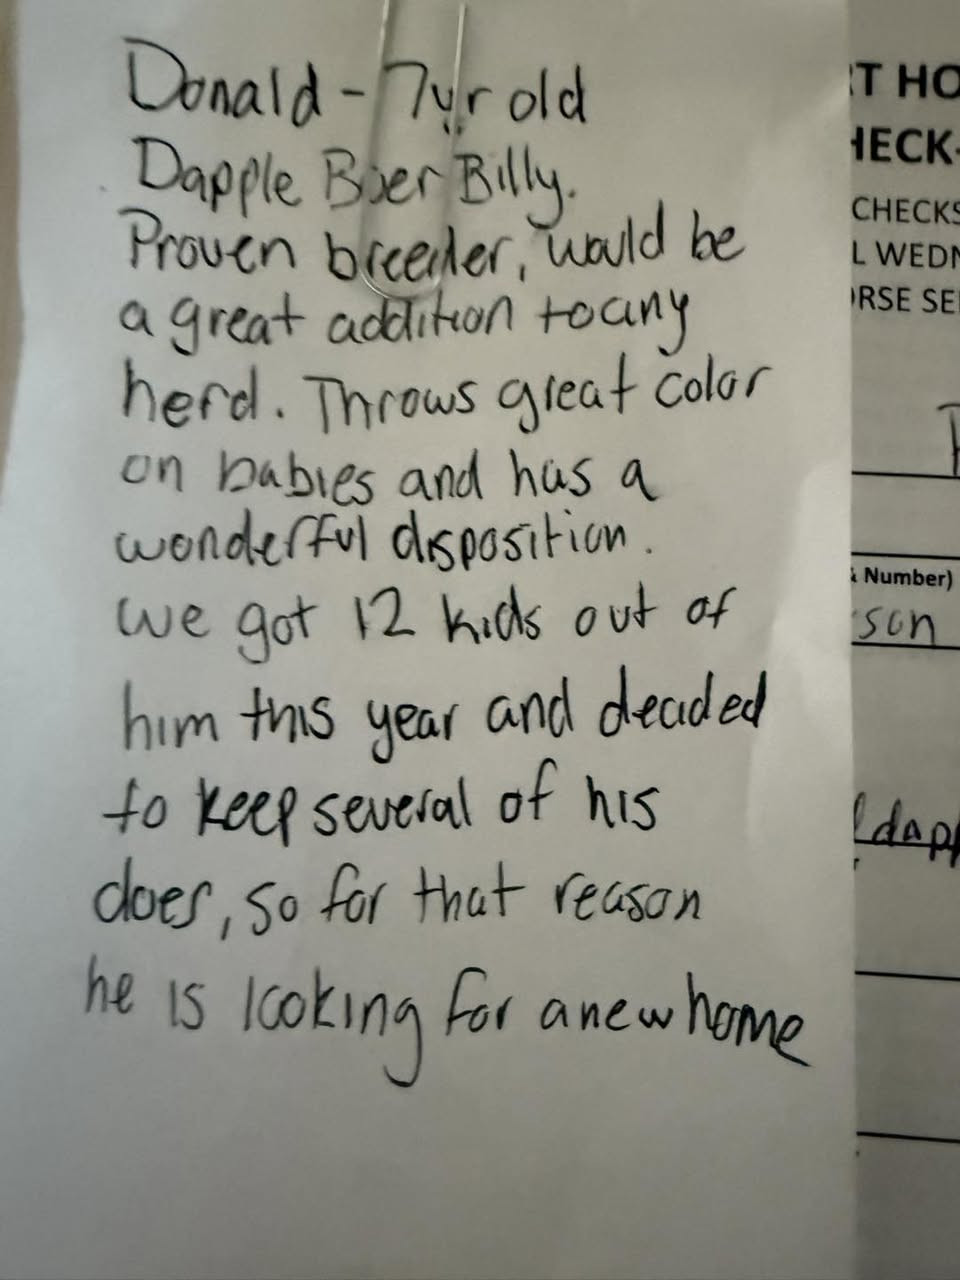 Donald - 7yr old
Dapple Boer Billy.
Proven breeder, would be
a great addition to any
herd. Throws great color
on babies and has a
wonderful disposition.
we got 12 kids out of
him this year and decided
to keep several of his
does, so for that reason
he is looking for a new home
T HO
HECK-
CHECKS
L WEDN
RSE SE
Number)
son
dapp